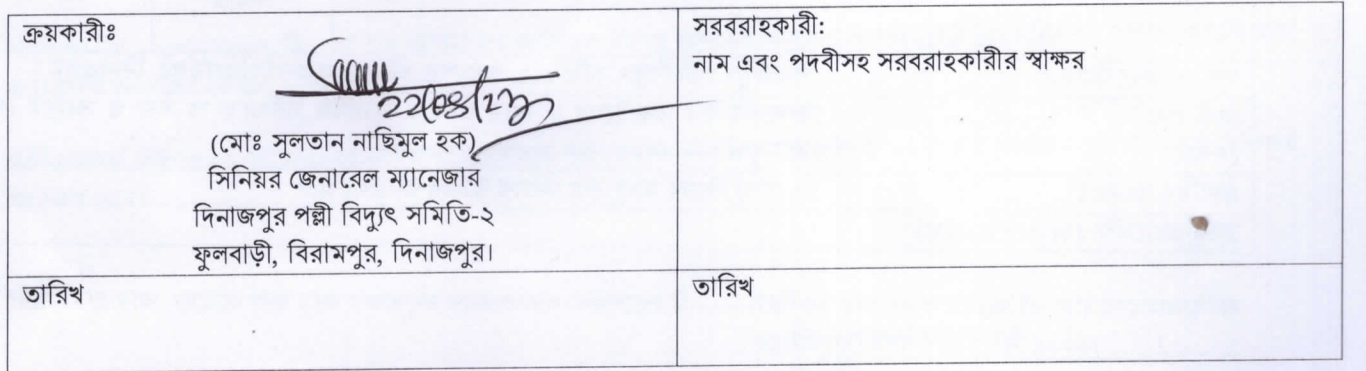 ক্রয়কারীঃ
২২/০৪/২৩
(মোঃ সুলতান নাছিমুল হক)
সিনিয়র জেনারেল ম্যানেজার
দিনাজপুর পল্লী বিদ্যুৎ সমিতি-২
ফুলবাড়ী, বিরামপুর, দিনাজপুর।
সরবরাহকারী:
নাম এবং পদবীসহ সরবরাহকারীর স্বাক্ষর
তারিখ
তারিখ